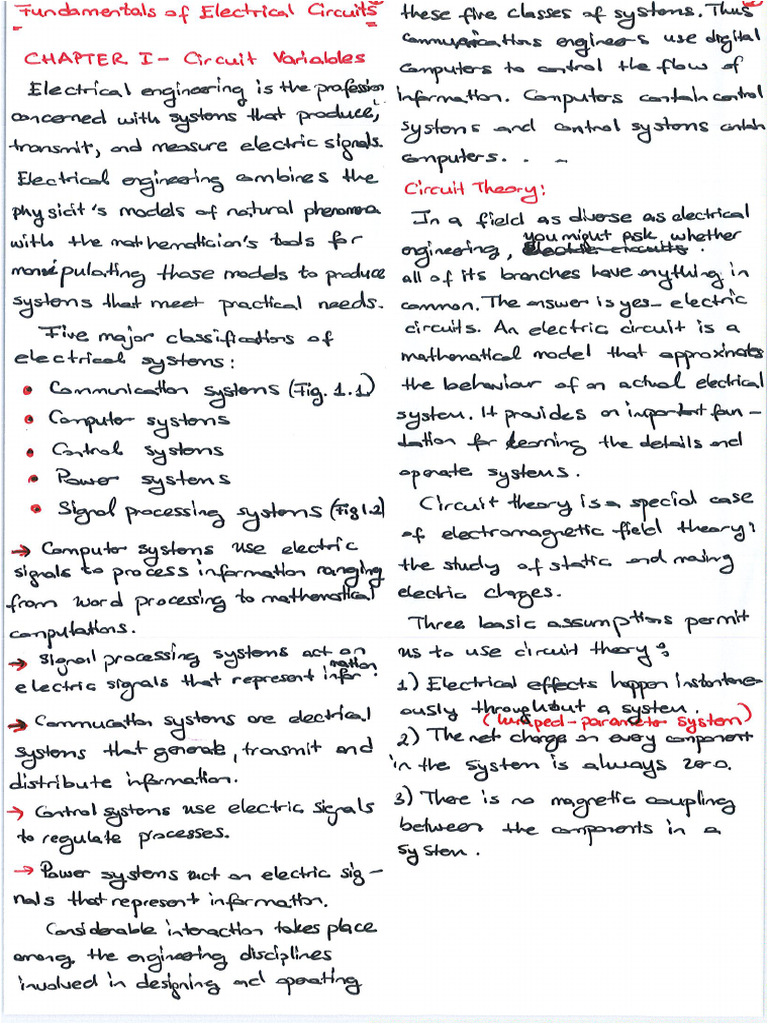 Fundamentals of Electrical Circuits
CHAPTER I - Circuit Variables
Electrical engineering is the profession
concerned with systems that produce,
transmit, and measure electric signals.
Electrical engineering combines the
physicit's models of natural phenomena
with the mathematician's tools for
manipulating those models to produce
systems that meet practical needs.
Five major classifications of
electrical systems:
• Communication systems (Fig. 1.1)
• Computer systems
• Control systems
• Power systems
• Signal processing systems (Fig 1.2)
→ Computer systems use electric
signals to process information ranging
from word processing to mathematical
computations.
→ Signal processing systems act on
electric signals that represent information.
→ Commucation systems are electrical
systems that generate, transmit and
distribute information.
→ Control systems use electric signals
to regulate processes.
→ Power systems act on electric sig-
nals that represent information.
Considerable interaction takes place
among the engineering disciplines
involved in designing and operating
these five classes of systems. Thus
communications engineers use digital
computers to control the flow of
information. Computers contain control
systems and control systems contain
computers. . .
Circuit Theory:
In a field as diverse as electrical
engineering, you might ask whether
all of its branches have anything in
common. The answer is yes- electric
circuits. An electric circuit is a
mathematical model that approximates
the behaviour of an actual electrical
system. It provides an important foun-
dation for learning the details and
operate systems.
Circuit theory is a special case
of electromagnetic field theory:
the study of static and moving
electric charges.
Three basic assumptions permit
us to use circuit theory:
1) Electrical effects happen instantane-
ously throughout a system.
(lumped-parameter system)
2) The net charge on every component
in the system is always zero.
3) There is no magnetic coupling
between the components in a
system.